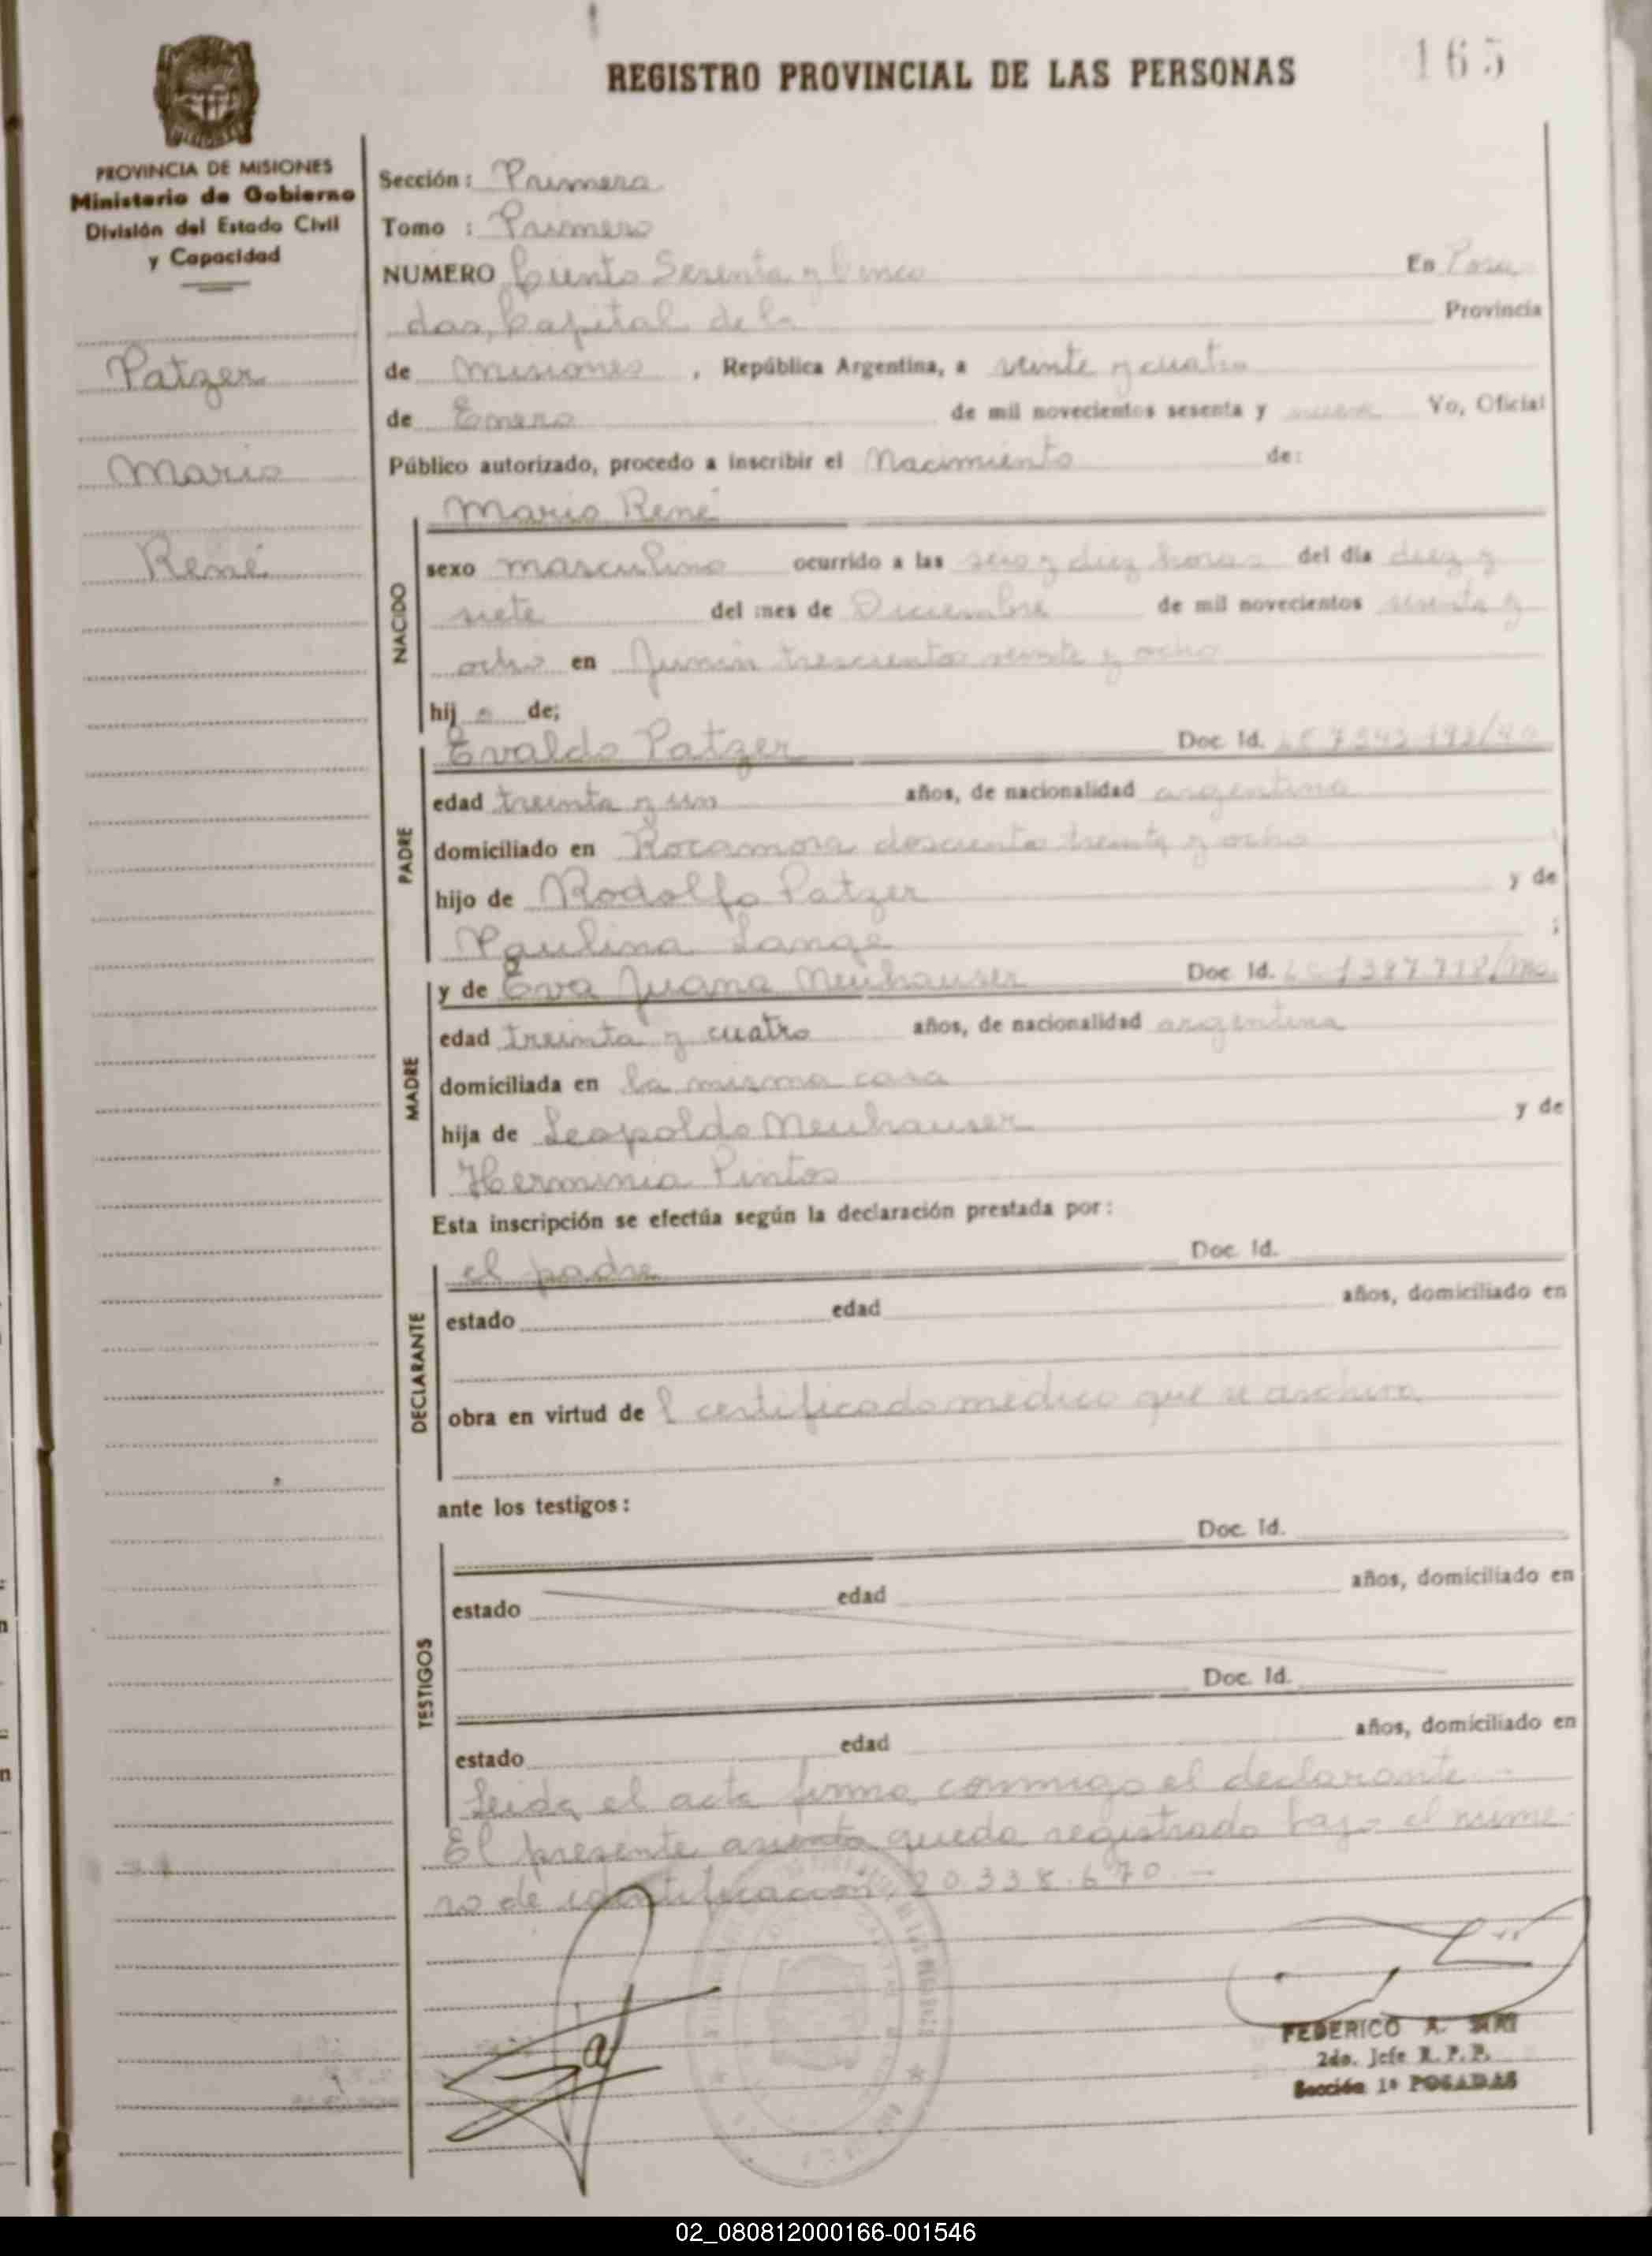 REGISTRO PROVINCIAL DE LAS PERSONAS
165
PROVINCIA DE MISIONES
Ministerio de Gobierno
División del Estado Civil
y Capacidad
Patzer
Mario
René
Sección: Primera
Tomo : Primero
NUMERO Ciento Sesenta y Cinco En Posa
das, Capital de la Provincia
de Misiones, República Argentina, a veinte y cuatro
de Enero de mil novecientos sesenta y nueve Yo, Oficial
Público autorizado, procedo a inscribir el Nacimiento de:
NACIDO
Mario René
sexo masculino ocurrido a las seis y diez horas del día diez y
siete del mes de Diciembre de mil novecientos sesenta y
ocho en Junín trescientos veinte y ocho
hij o de;
PADRE
Evaldo Patzer Doc. Id.
edad treinta y un años, de nacionalidad argentina
domiciliado en Rocamora doscientos treinta y ocho
hijo de Rodolfo Patzer y de
Paulina Lange ;
MADRE
y de Eva Juana Neuhauser Doc. Id.
edad treinta y cuatro años, de nacionalidad argentina
domiciliada en la misma casa
hija de Leopoldo Neuhauser y de
Herminia Pintos
Esta inscripción se efectúa según la declaración prestada por:
DECLARANTE
el padre Doc. Id.
estado edad años, domiciliado en
obra en virtud de l certificado medico que se archiva
ante los testigos:
TESTIGOS
Doc. Id.
estado edad años, domiciliado en
Doc. Id.
estado edad años, domiciliado en
Leida el acta firma conmigo el declarante.-
El presente asiento queda registrado bajo el núme-
ro de identificación 20.338.670.-
FEDERICO A.
2do. Jefe R. P. P.
Sección 1ª POSADAS
02_080812000166-001546